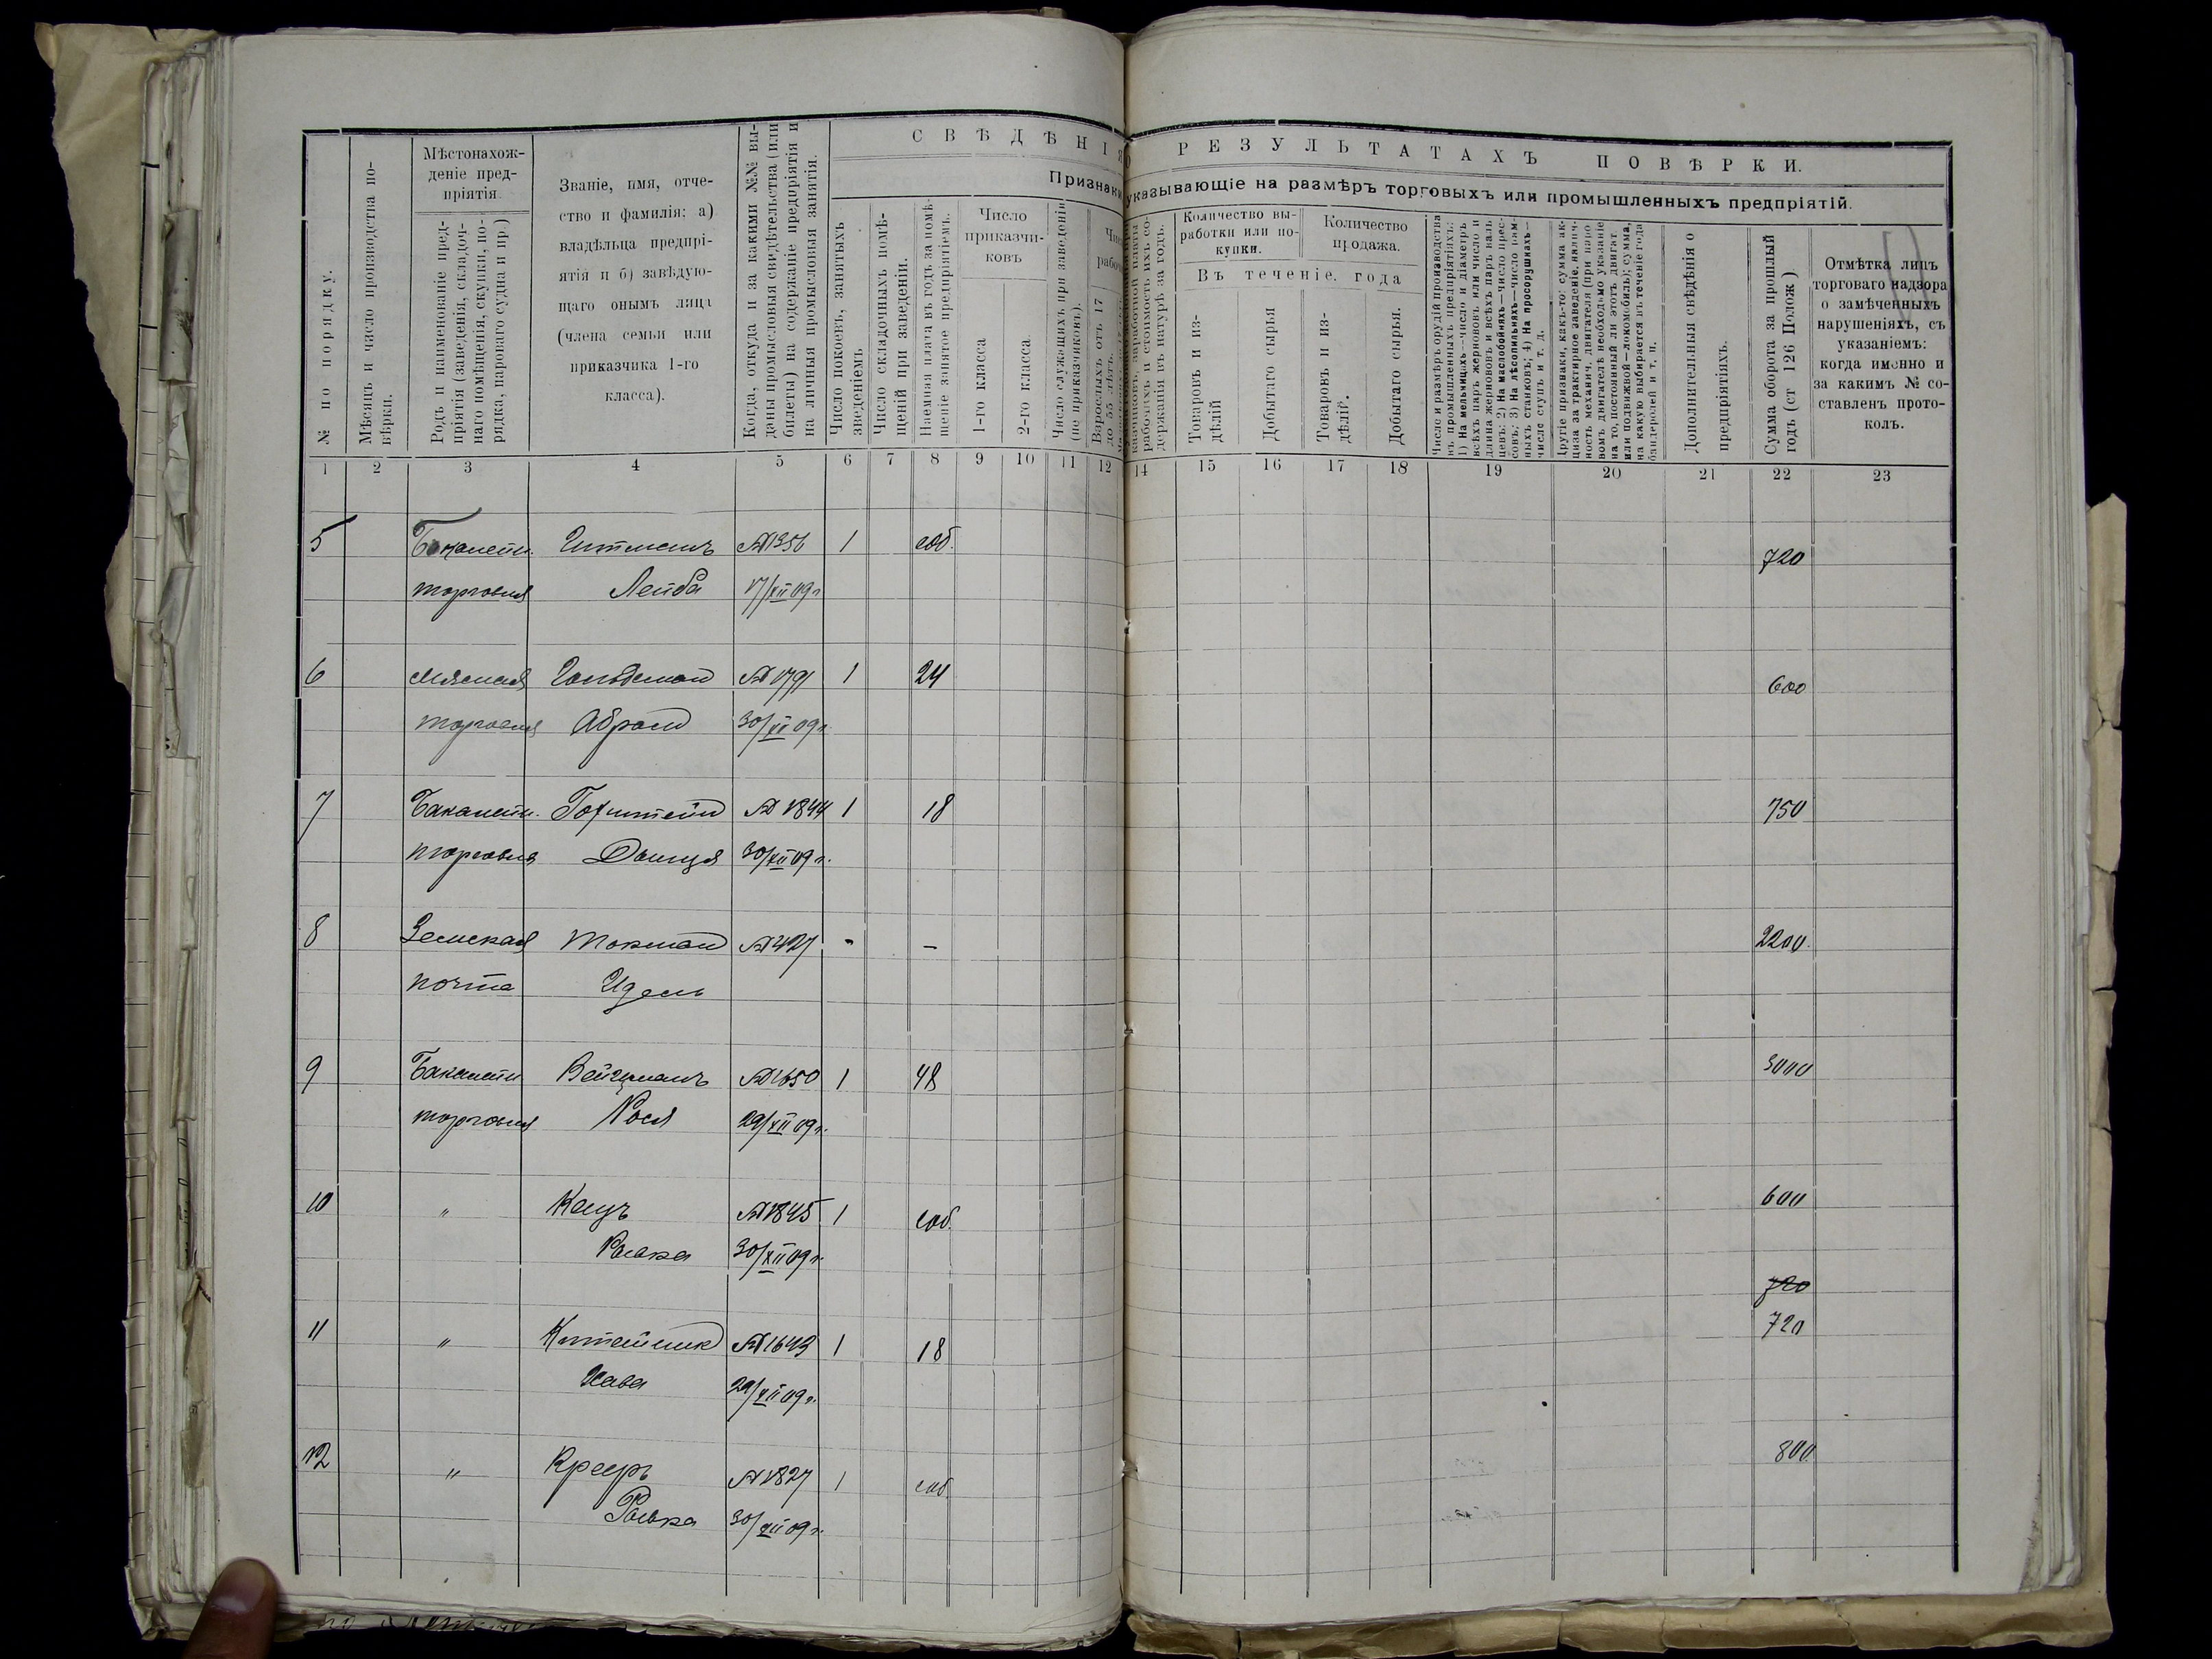 СВѢДѢНІЯ О РЕЗУЛЬТАТАХЪ ПОВѢРКИ.
Признаки, указывающіе на размѣръ торговыхъ или промышленныхъ предпріятій.
№ по порядку.
Мѣсяцъ и число производства по-
вѣрки.
Мѣстонахож-
деніе пред-
пріятія.
Родъ и наименованіе пред-
пріятія (заведенія, складоч-
наго помѣщенія, скупки, по-
рядка, парового судна и пр.)
Званіе, имя, отче-
ство и фамилія: а)
владѣльца предпрі-
ятія и б) завѣдую-
щаго онымъ лица
(члена семьи или
приказчика 1-го
класса).
Когда, откуда и за какими №№ вы-
даны промысловыя свидѣтельства (или
билеты) на содержаніе предпріятія и
на личныя промысловыя занятія.
Число покоевъ, занятыхъ
зведеніемъ
Число складочныхъ помѣ-
щеній при заведеніи.
Наемная плата въ годъ за помѣ-
щеніе занятое предпріятіемъ.
Число
приказчи-
ковъ
1-го класса
2-го класса.
Число служащихъ при заведеніи
(не приказчиковъ).
Взрослыхъ отъ 17
до 55 лѣтъ.
рабочихъ и стоимость ихъ со-
держанія въ натурѣ за годъ.
Количество вы-
работки или по-
купки.
Количество
продажа.
Въ теченіе года
Товаровъ и из-
дѣлій
Добытаго сырья
Товаровъ и из-
дѣлій.
Добытаго сырья.
Число и размѣръ орудій производства
въ промышленныхъ предпріятіяхъ:
1) На мельницахъ—число и діаметръ
всѣхъ паръ жернововъ или число и
длина жернововъ и всѣхъ паръ валь
цевъ; 2) На маслобойняхъ—число прес-
совъ; 3) На лѣсопильняхъ—число рам-
ныхъ станковъ; 4) На просорушняхъ—
число ступъ и т. д.
Другіе признаки, какъ-то: сумма ак-
циза за трактирное заведеніе, налич-
ность механич. двигателя (при паро
вомъ двигателѣ необходимо указаніе
на то, постоянный ли этотъ двигат.
или подвижной—локомобиль); сумма,
на какую выбирается въ теченіе года
бандеролей и т. п.
Дополнительныя свѣдѣнія о
предпріятіяхъ.
Сумма оборота за прошлый
годъ (ст 126 Полож)
Отмѣтка лицъ
торговаго надзора
о замѣченныхъ
нарушеніяхъ, съ
указаніемъ:
когда именно и
за какимъ № со-
ставленъ прото-
колъ.
1 2 3 4 5 6 7 8 9 10 11 12 14 15 16 17 18 19 20 21 22 23
5 Бакалейн. Гитманъ №1356 1 соб. 720
торговля Лейба 17/XII 09 г
6 Мясная Гольдман №1791 1 24 600
торговля Абрам 30/XII 09 г.
7 Бакалейн. Гохштейн №1844 1 18 750
торговля Двися 30/XII 09 г.
8 Земская Токман №427 - - 2200.
почта Идель
9 Бакалейн Вейцманъ №1650 1 48 3000
торговля Рося 29/XII 09 г.
10 " Кацъ №1845 1 соб. 600
Ривка 30/XII 09 г.
720
11 " №1643 1 18 720
Хава 29/XII 09 г.
12 " №1827 1 соб. 800.
Ривка 30/XII 09 г.